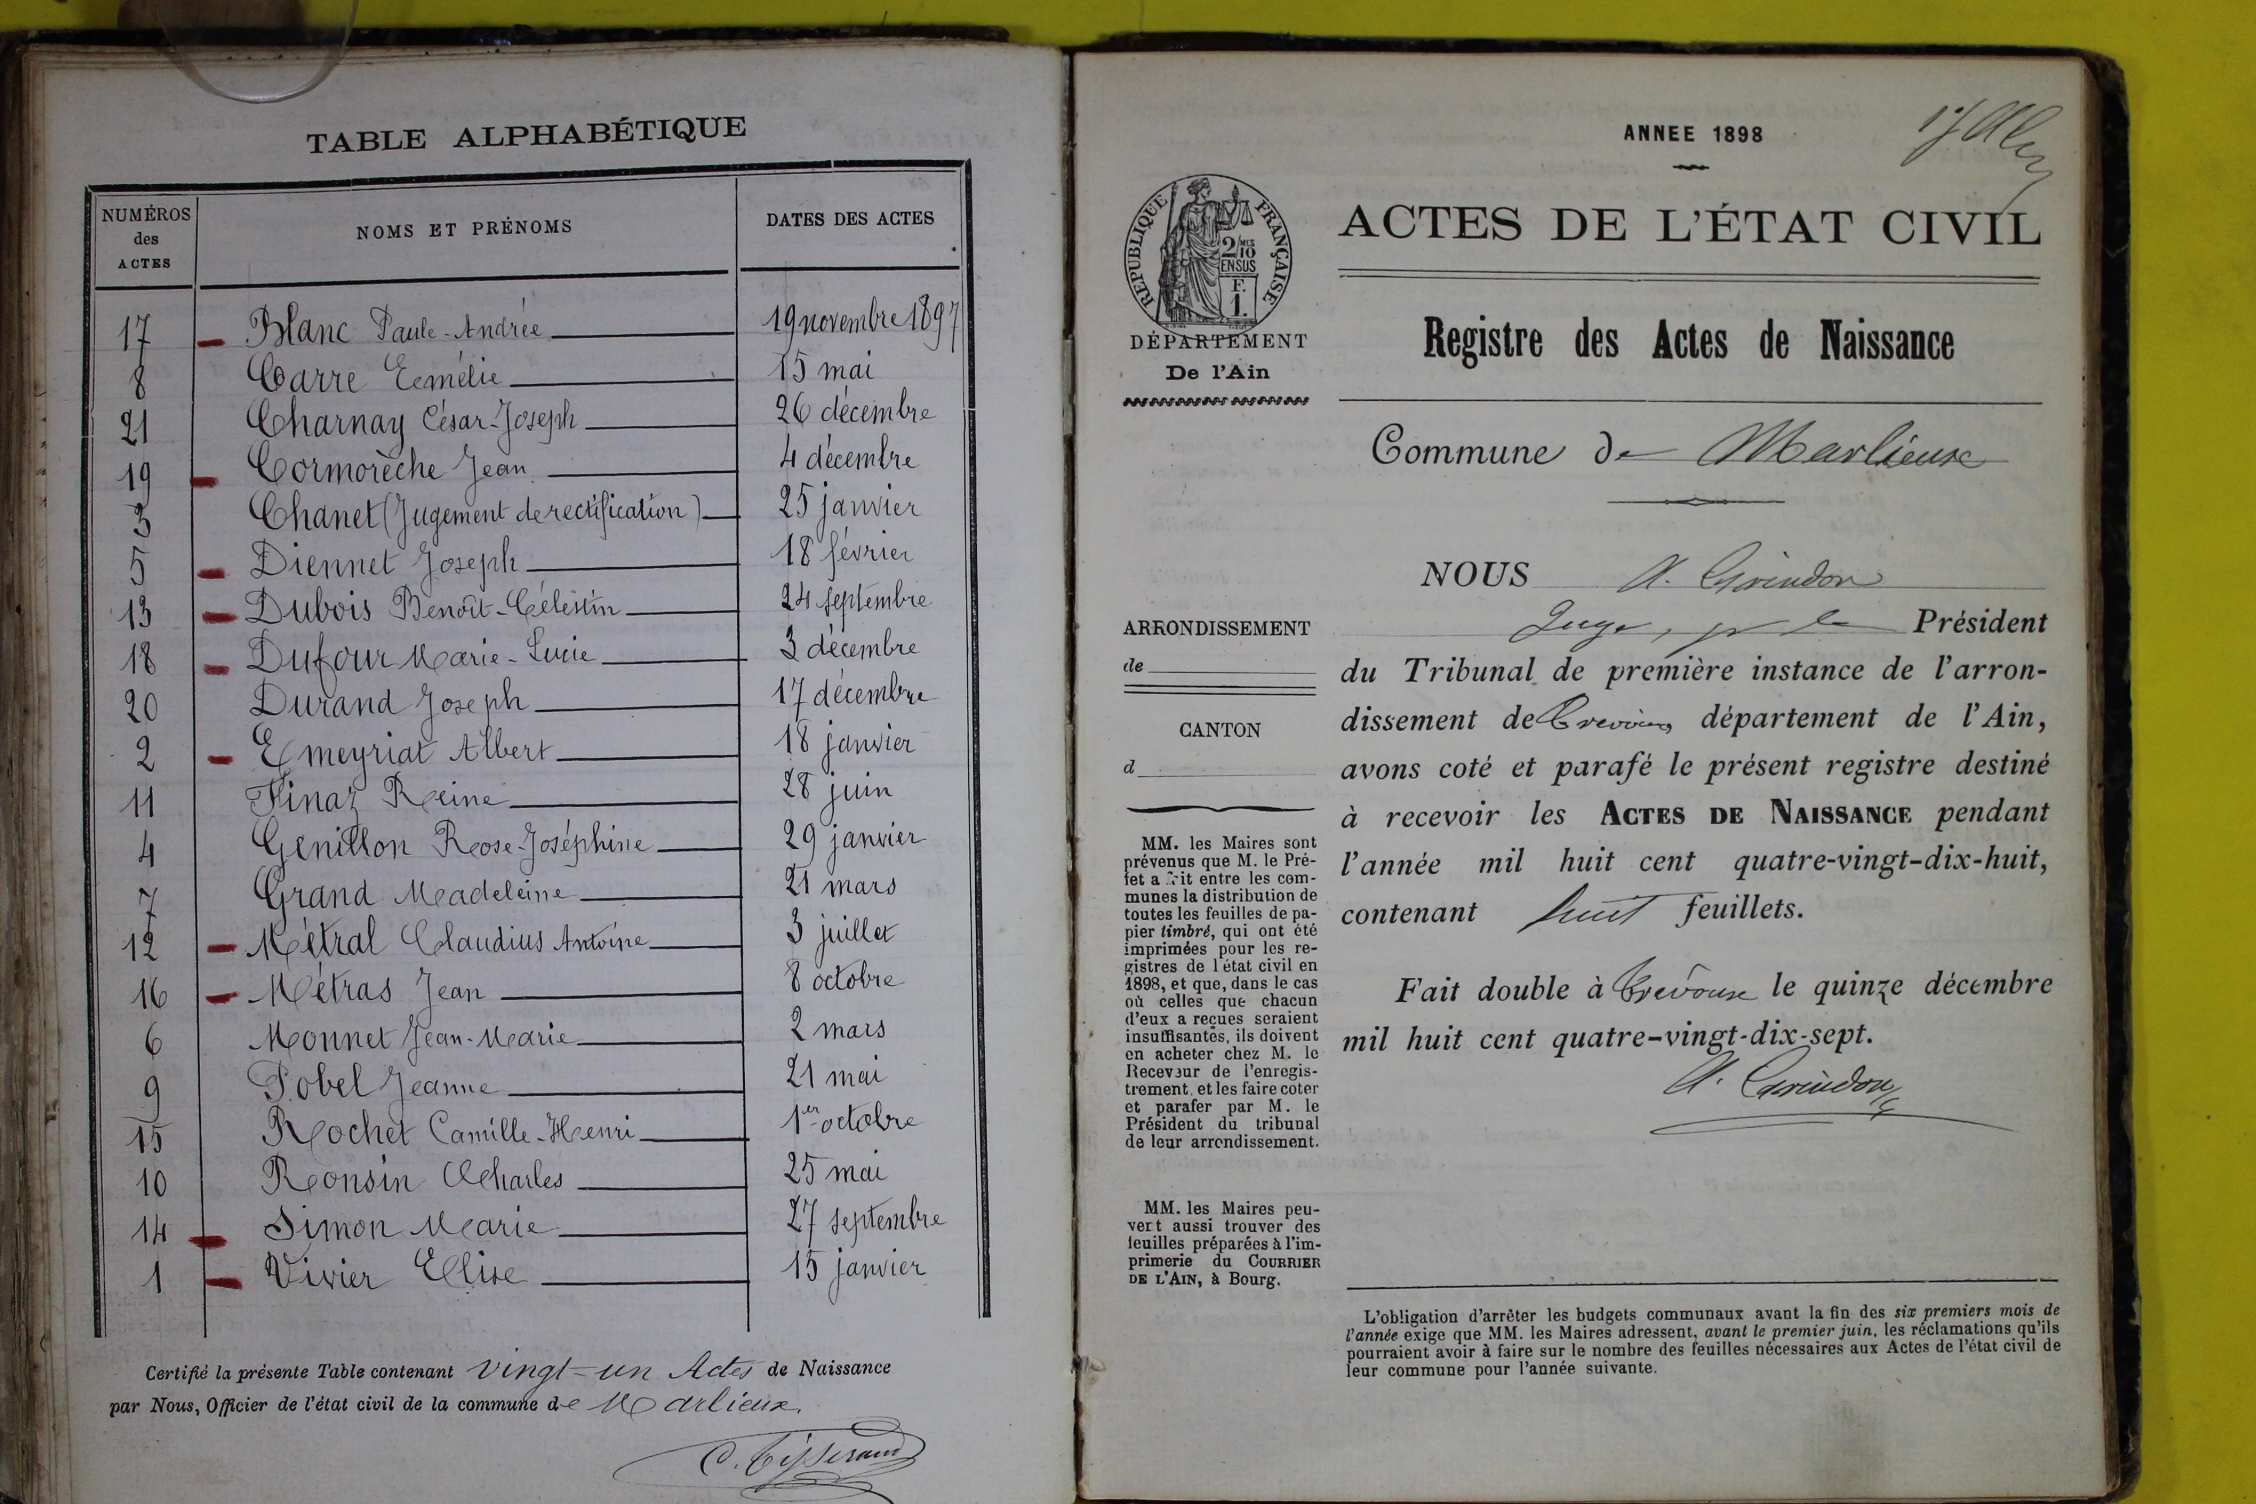 TABLE ALPHABÉTIQUE
NUMÉROS des ACTES
NOMS ET PRÉNOMS
DATES DES ACTES
17 Blanc Paule-Andrée 19 novembre 1897
8 Carre Eemélie 15 mai
21 Charnay César-Joseph 26 décembre
19 Cormorèche Jean 4 décembre
3 Chanet (Jugement de rectification) 25 janvier
5 Diennet Joseph 18 février
13 Dubois Benoît-Célestin 24 septembre
18 Dufour Marie-Lucie 3 décembre
20 Durand Joseph 17 décembre
2 Emeyriat Albert 18 janvier
11 Finaz Reine 28 juin
4 Genillon Rose-Joséphine 29 janvier
7 Grand Madeleine 21 mars
12 Métral Claudius Antoine 3 juillet
16 Métras Jean 8 octobre
6 Monnet Jean-Marie 2 mars
9 Pobel Jeanne 21 mai
15 Rochet Camille-Henri 1er octobre
10 Ronsin Charles 25 mai
14 Simon Marie 27 septembre
1 Vivier Elise 15 janvier
Certifié la présente Table contenant vingt-un Actes de Naissance
par Nous, Officier de l'état civil de la commune de Marlieux.
C. Tisserand
ANNEE 1898
RÉPUBLIQUE FRANÇAISE
2/10 MES
EN SUS
F.
1.
DÉPARTEMENT
De l'Ain
ACTES DE L'ÉTAT CIVIL
Registre des Actes de Naissance
Commune de Marlieux
ARRONDISSEMENT
de
CANTON
d
MM. les Maires sont
prévenus que M. le Pré-
fet a fait entre les com-
munes la distribution de
toutes les feuilles de pa-
pier timbré, qui ont été
imprimées pour les re-
gistres de l'état civil en
1898, et que, dans le cas
où celles que chacun
d'eux a reçues seraient
insuffisantes, ils doivent
en acheter chez M. le
Receveur de l'enregis-
trement, et les faire coter
et parafer par M. le
Président du tribunal
de leur arrondissement.
MM. les Maires peu-
vent aussi trouver des
feuilles préparées à l'im-
primerie du COURRIER
DE L'AIN, à Bourg.
NOUS A. Grindon
Juge, pr le Président
du Tribunal de première instance de l'arron-
dissement de Trévoux, département de l'Ain,
avons coté et parafé le présent registre destiné
à recevoir les ACTES DE NAISSANCE pendant
l'année mil huit cent quatre-vingt-dix-huit,
contenant huit feuillets.
Fait double à Trévoux le quinze décembre
mil huit cent quatre-vingt-dix-sept.
A. Grindon
L'obligation d'arrêter les budgets communaux avant la fin des six premiers mois de
l'année exige que MM. les Maires adressent, avant le premier juin, les réclamations qu'ils
pourraient avoir à faire sur le nombre des feuilles nécessaires aux Actes de l'état civil de
leur commune pour l'année suivante.